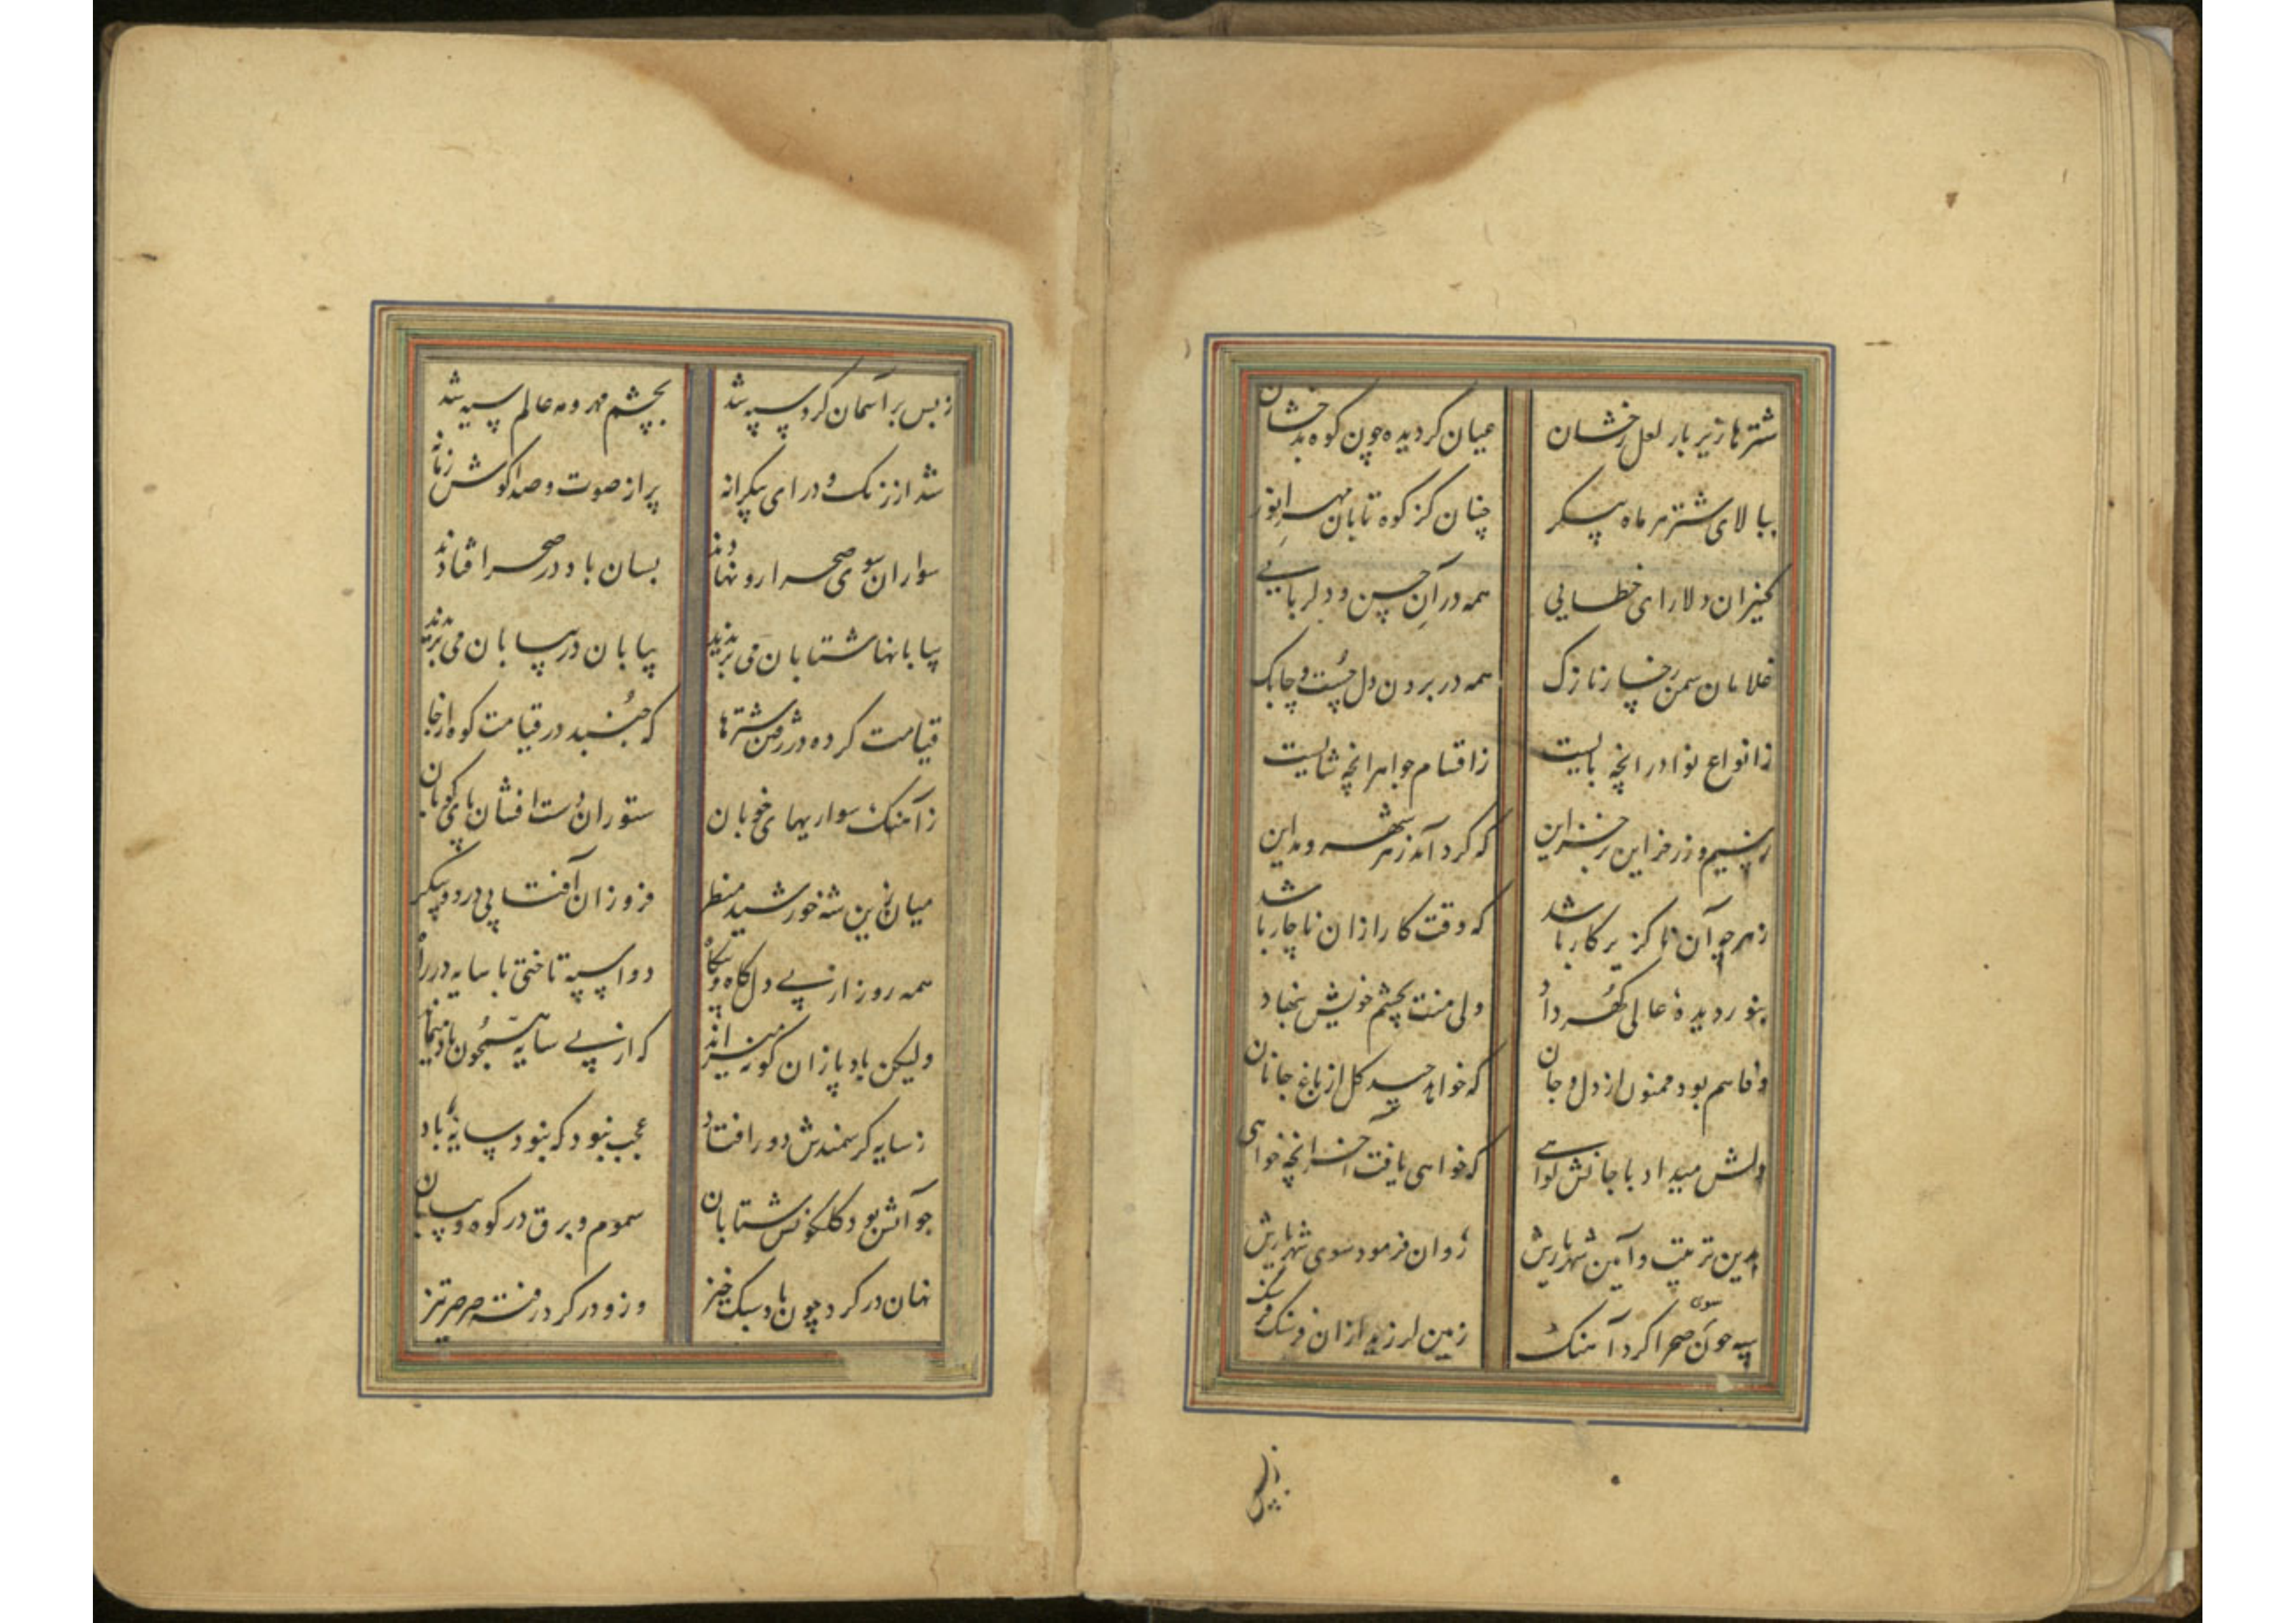 شترها زیر بار لعل رخشان عیان کردیده چون کوه بدخشان
ببالای شتر هر ماه پیکر چنان کز کوه تابان مهر انور
کنیزان دلارای خطایی همه در آن حسن و دلربایی
غلامان سمن رخسار نازک همه در بردن دل چست و چابک
ز انواع نوادر انچه بایست ز اقسام جواهر انچه شایست
ز سیم و زر خزاین بر خزاین که کرد آمد ز هر شهر و مداین
ز هر چو آن ناکزیر کار باشد که وقت کار ازان ناچار باشد
بنور دیده عالی کهر داد ولی منت بچشم خویش بنهاد
وفا هم بود ممنون از دل و جان که خواهد چید کل از باغ جانان
دلش میداد با جانش نوایی که خواهی یافت آخر انچه خواهی
بدین ترتیب و آیین شهریارش روان فرمود سوی شهریارش
سپه چون سوی صحرا کرد آهنک زمین لرزید ازان فرسنک فرسنک
ز بس
ز بس بر آسمان کرد سپه شد بچشم مهر و مه عالم سیه شد
شد از زنک و درای بیکرانه پر از صوت و صدا کوش زمانه
سواران سوی صحرا رو نهادند بسان باد در صحرا فتادند
بیابانها شتابان می بریدند بیابان در بیابان می بریدند
قیامت کرده در رفتن شترها که جنبد در قیامت کوه از جا
ز آهنک سواریهای خوبان ستوران دست افشان پای کوبان
میان زین شه خورشید منظر فروزان آفتابی در دو پیکر
همه روز از پی دل کاه و بیکاه دو اسپه تاختی با سایه در راه
ولیکن باد پا زان کونه میراند که از پی سایه همچون باد میماند
ز سایه کر سمندش دور افتاد عجب نبود که نبود سایه باد
چو آتش بود کلکونش شتابان سموم و برق در کوه و بیابان
نهان در کرد چون باد سبک خیز وزو در کرد رفته صرصر تیز